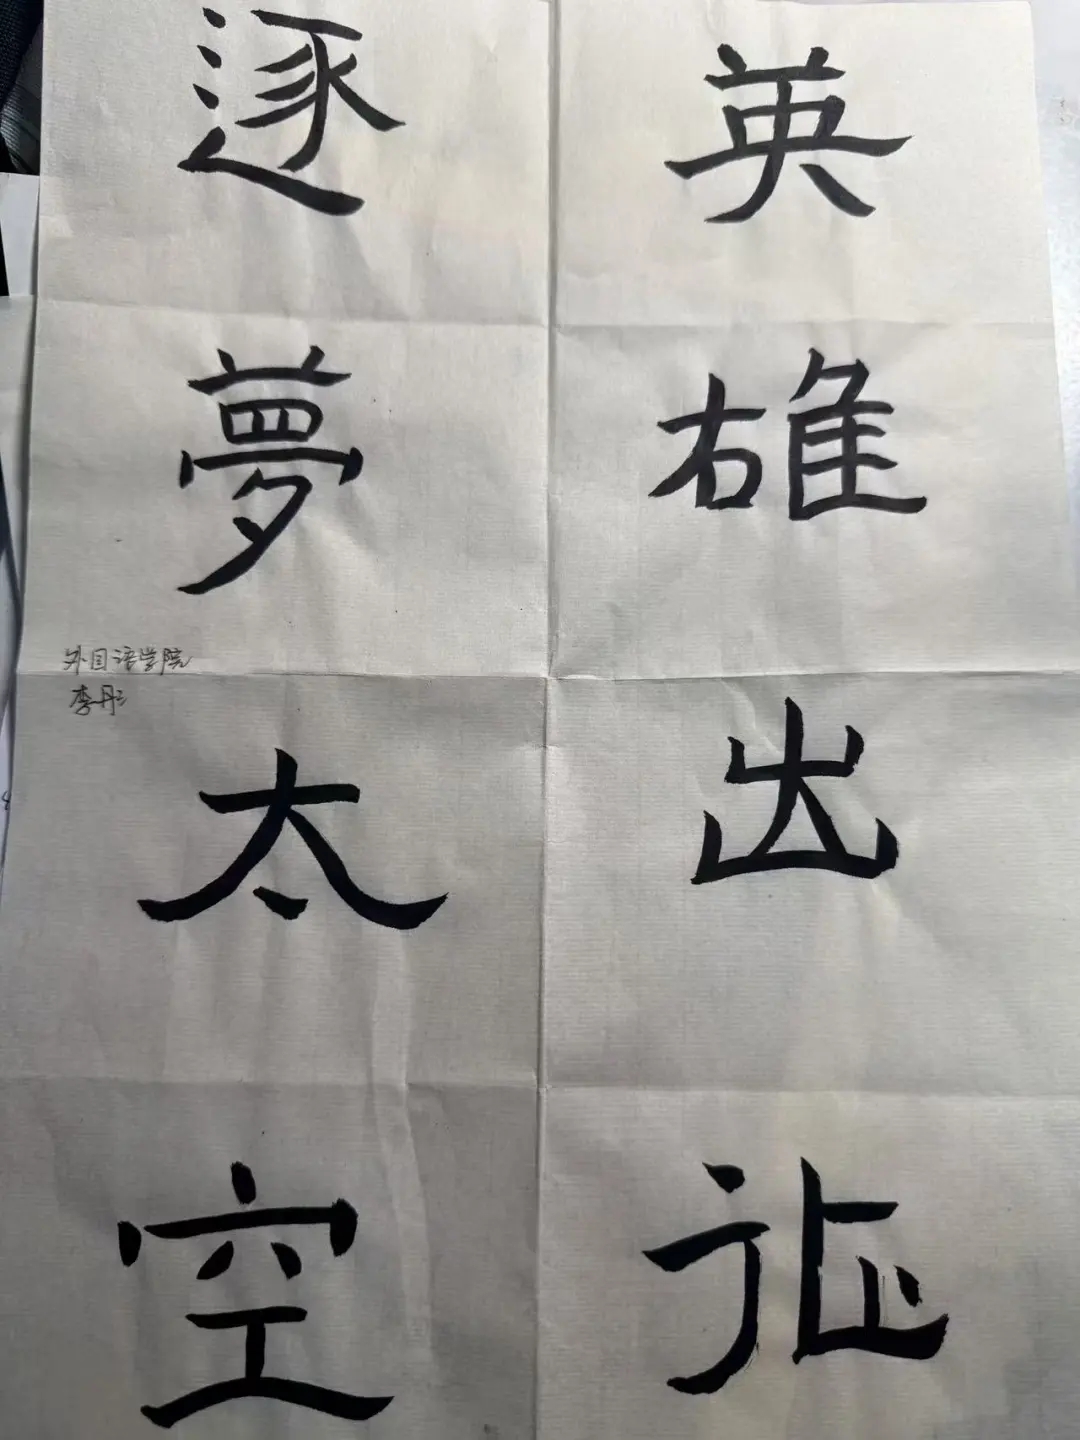 英雄出征
逐夢太空
外国语学院
李彤